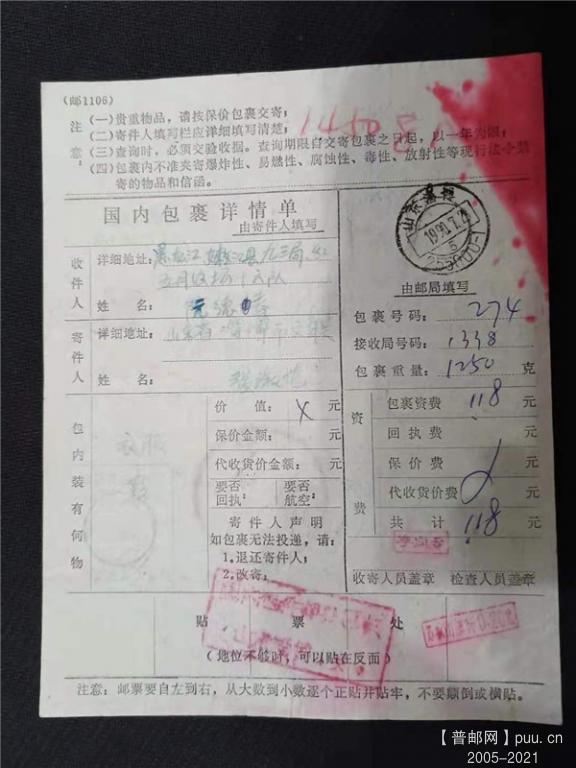 (邮1106)
注意
(一)贵重物品，请按保价包裹交寄；
(二)寄件人填写栏应详细填写清楚；
(三)查询时，必须交验收据。查询期限自交寄包裹之日起，以一年为限；
(四)包裹内不准夹寄爆炸性、易燃性、腐蚀性、毒性、放射性等现行法令禁
寄的物品和信函。
国内包裹详情单
由寄件人填写
收件人
详细地址：黑龙江 嫩江县九三局
五月农场
姓名：
寄件人
详细地址：山东省淄博市
姓名：
包内装有何物
衣服
价值： X 元
保价金额： 元
代收货价金额： 元
要否回执² 要否航空²
寄件人声明
如包裹无法投递，请：
1.退还寄件人；
2.改寄：
1990.7.2
255000
由邮局填写
包裹号码： 274
接收局号码： 1338
包裹重量： 1250 克
资费
包裹资费 118 元
回执费 元
保价费 元
代收货价费 元
共计 118 元
收寄人员盖章 检查人员盖章
贴票处
(地位不够时，可以贴在反面)
注意：邮票要自左到右，从大数到小数逐个正贴并贴牢，不要颠倒或横贴。
【普邮网】puu.cn
2005-2021